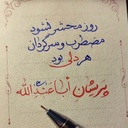 روز محشر نشود
مضطرب و سرگردان
هر دلی بود
پریشان اباعبدالله